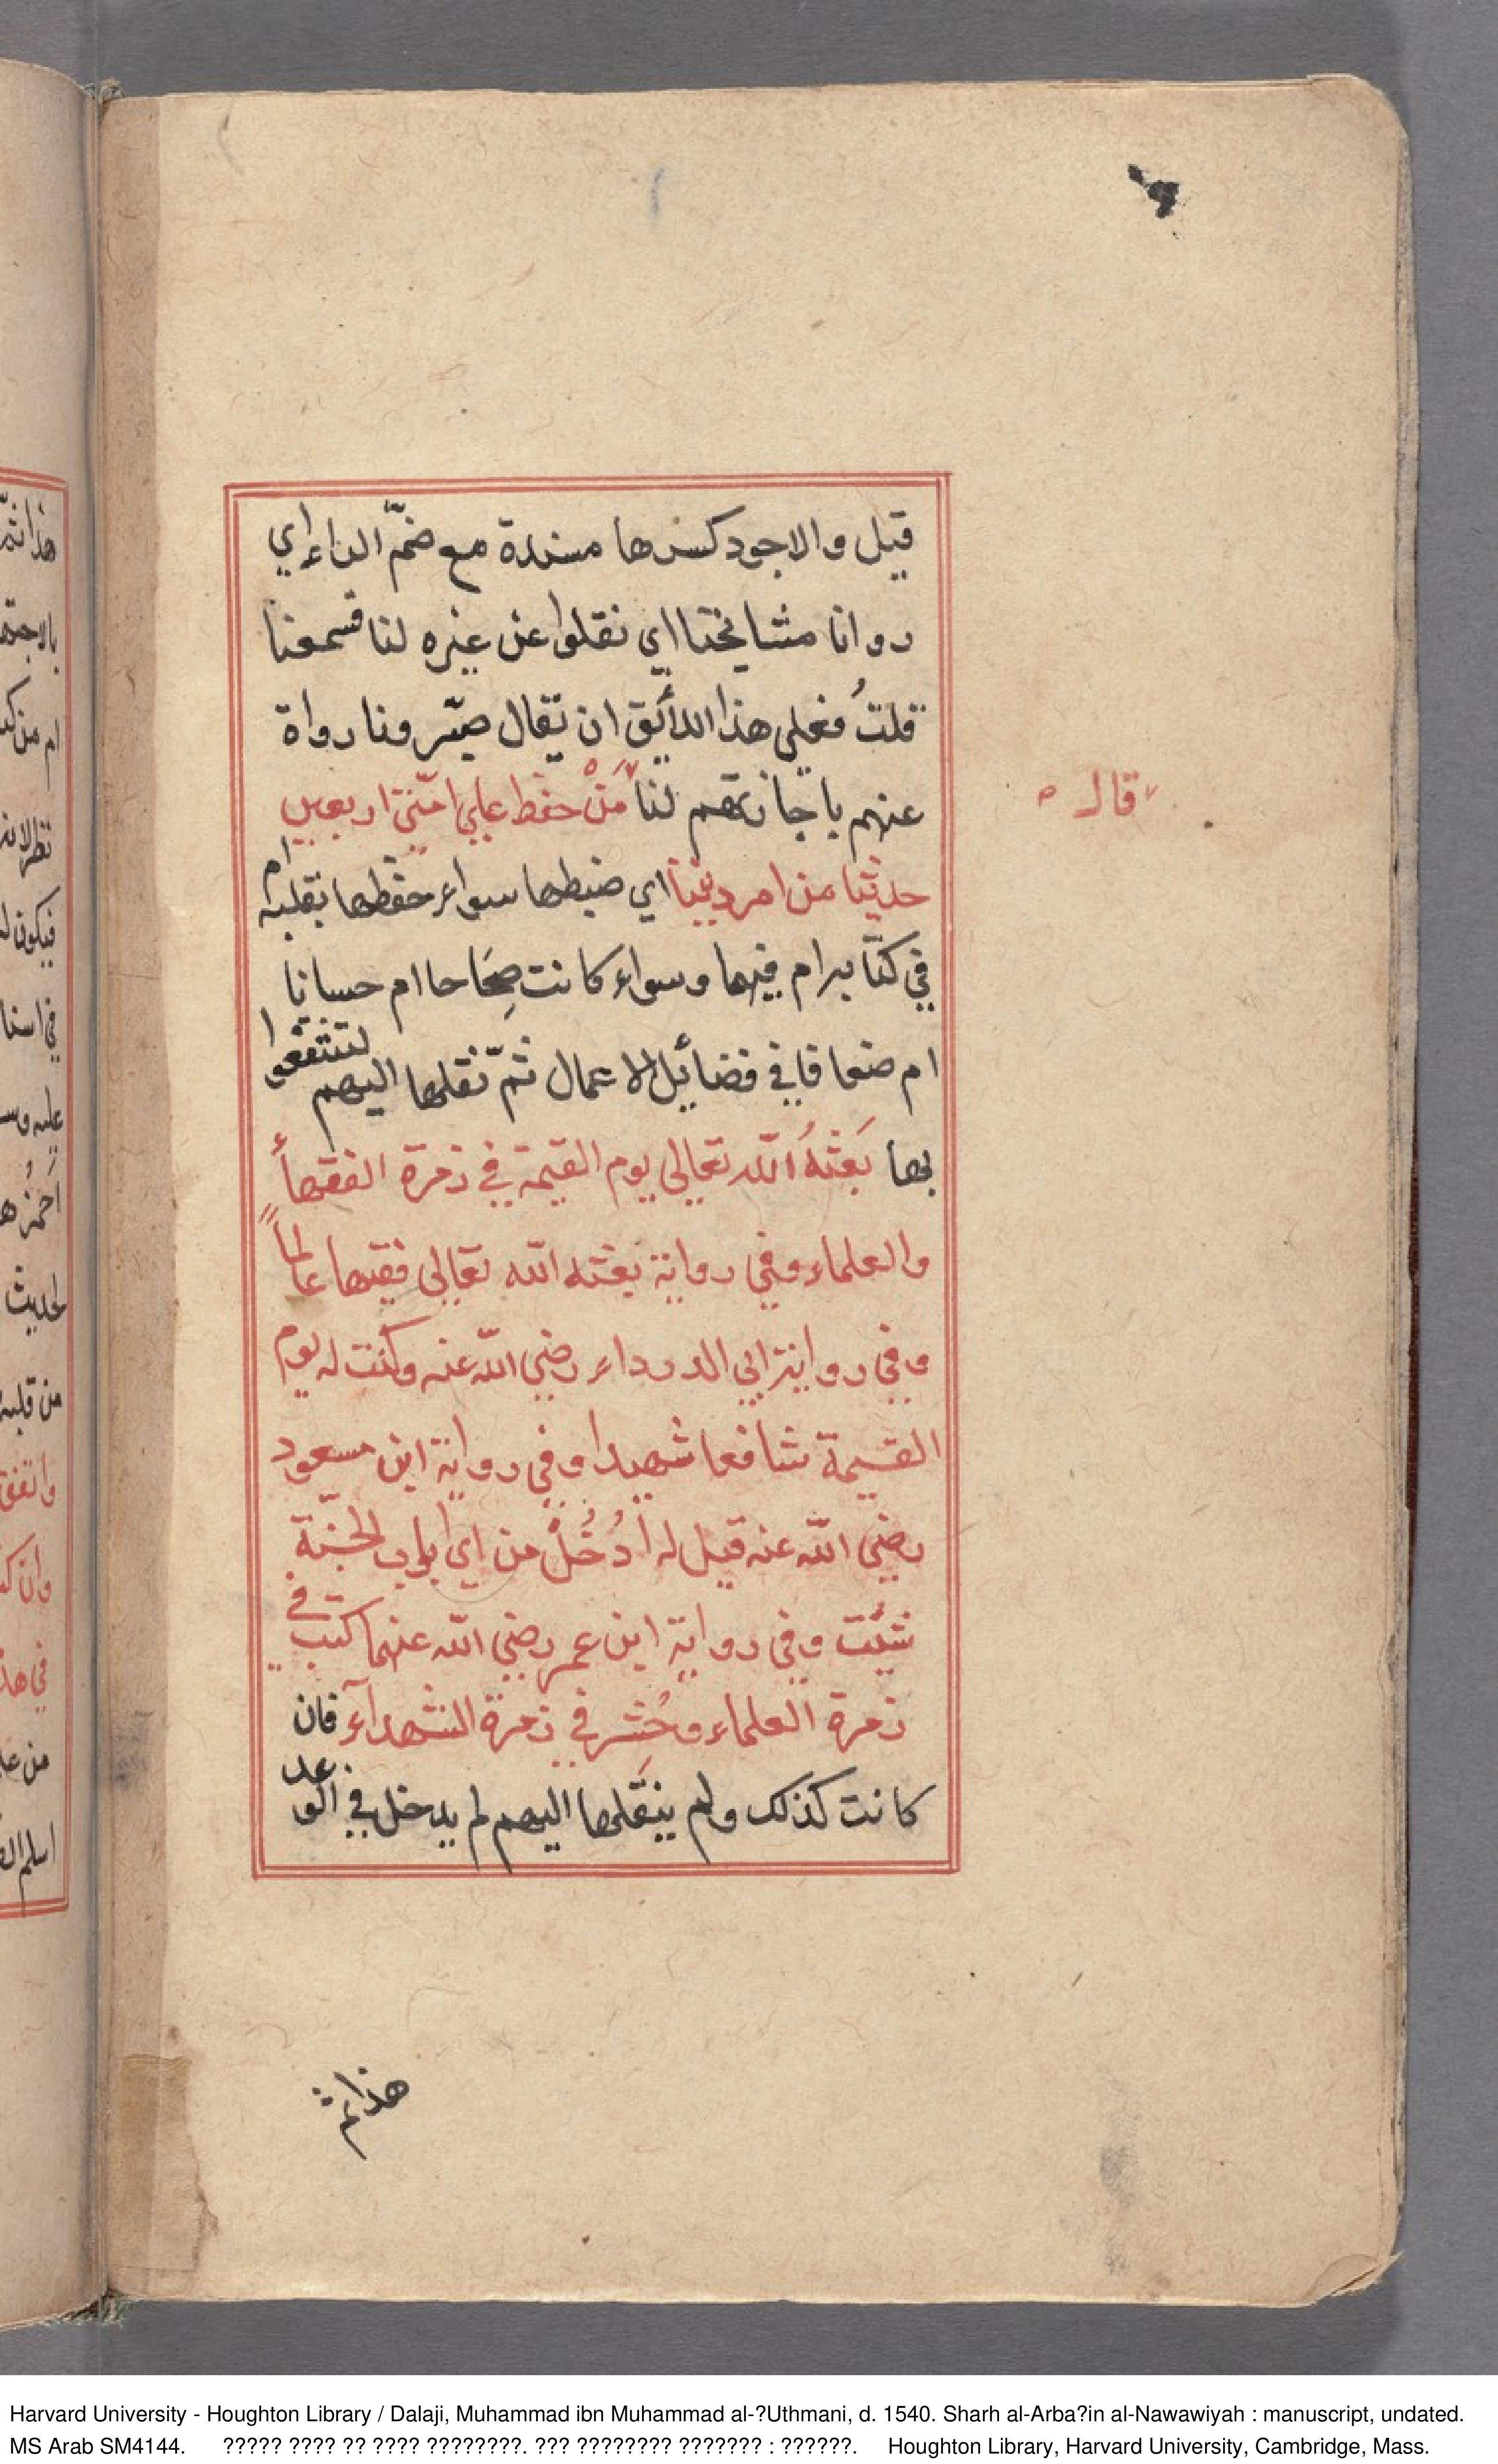 قيل والاجود كسرها مشددة مع ضمّ الراء اي
روانا مشايخنا اي نقلوا عن غيره لنا فسمعنا
قلتُ فعلى هذا اللائق ان يقال صيّرونا رواة
عنهم باجازتهم لنا مَنْ حفظ علي امّتي اربعين
قال
حديثا من امر دينها اي ضبطها سواء حفظها بقلبه ام
في كتاب ام فيهما وسواء كانت صِحَاحا ام حسانا
ام ضعافا في فضائل الاعمال ثمّ نقلها اليهم لتنتفعوا
بها بَعَثَهُ الله تعالى يوم القيمة في زمرة الفقهاء
والعلماء وفي رواية بعثه الله تعالى فقيها عالما
وفي رواية ابي الدرداء رضي الله عنه وكنت له يوم
القيمة شافعا شهيدا وفي رواية ابن مسعود
رضي الله عنه قيل له اُدْخُلْ من اي ابواب الجنّة
شئت وفي رواية ابن عمر رضي الله عنهما كتب في
زمرة العلماء وحُشِر في زمرة الشهدآء فان
كانت كذلك ولم ينقلها اليهم لم يدخل في الوعد
هذا ثم
Harvard University - Houghton Library / Dalaji, Muhammad ibn Muhammad al-?Uthmani, d. 1540. Sharh al-Arba?in al-Nawawiyah : manuscript, undated.
MS Arab SM4144. ????? ???? ?? ???? ????????. ??? ???????? ??????? : ??????. Houghton Library, Harvard University, Cambridge, Mass.